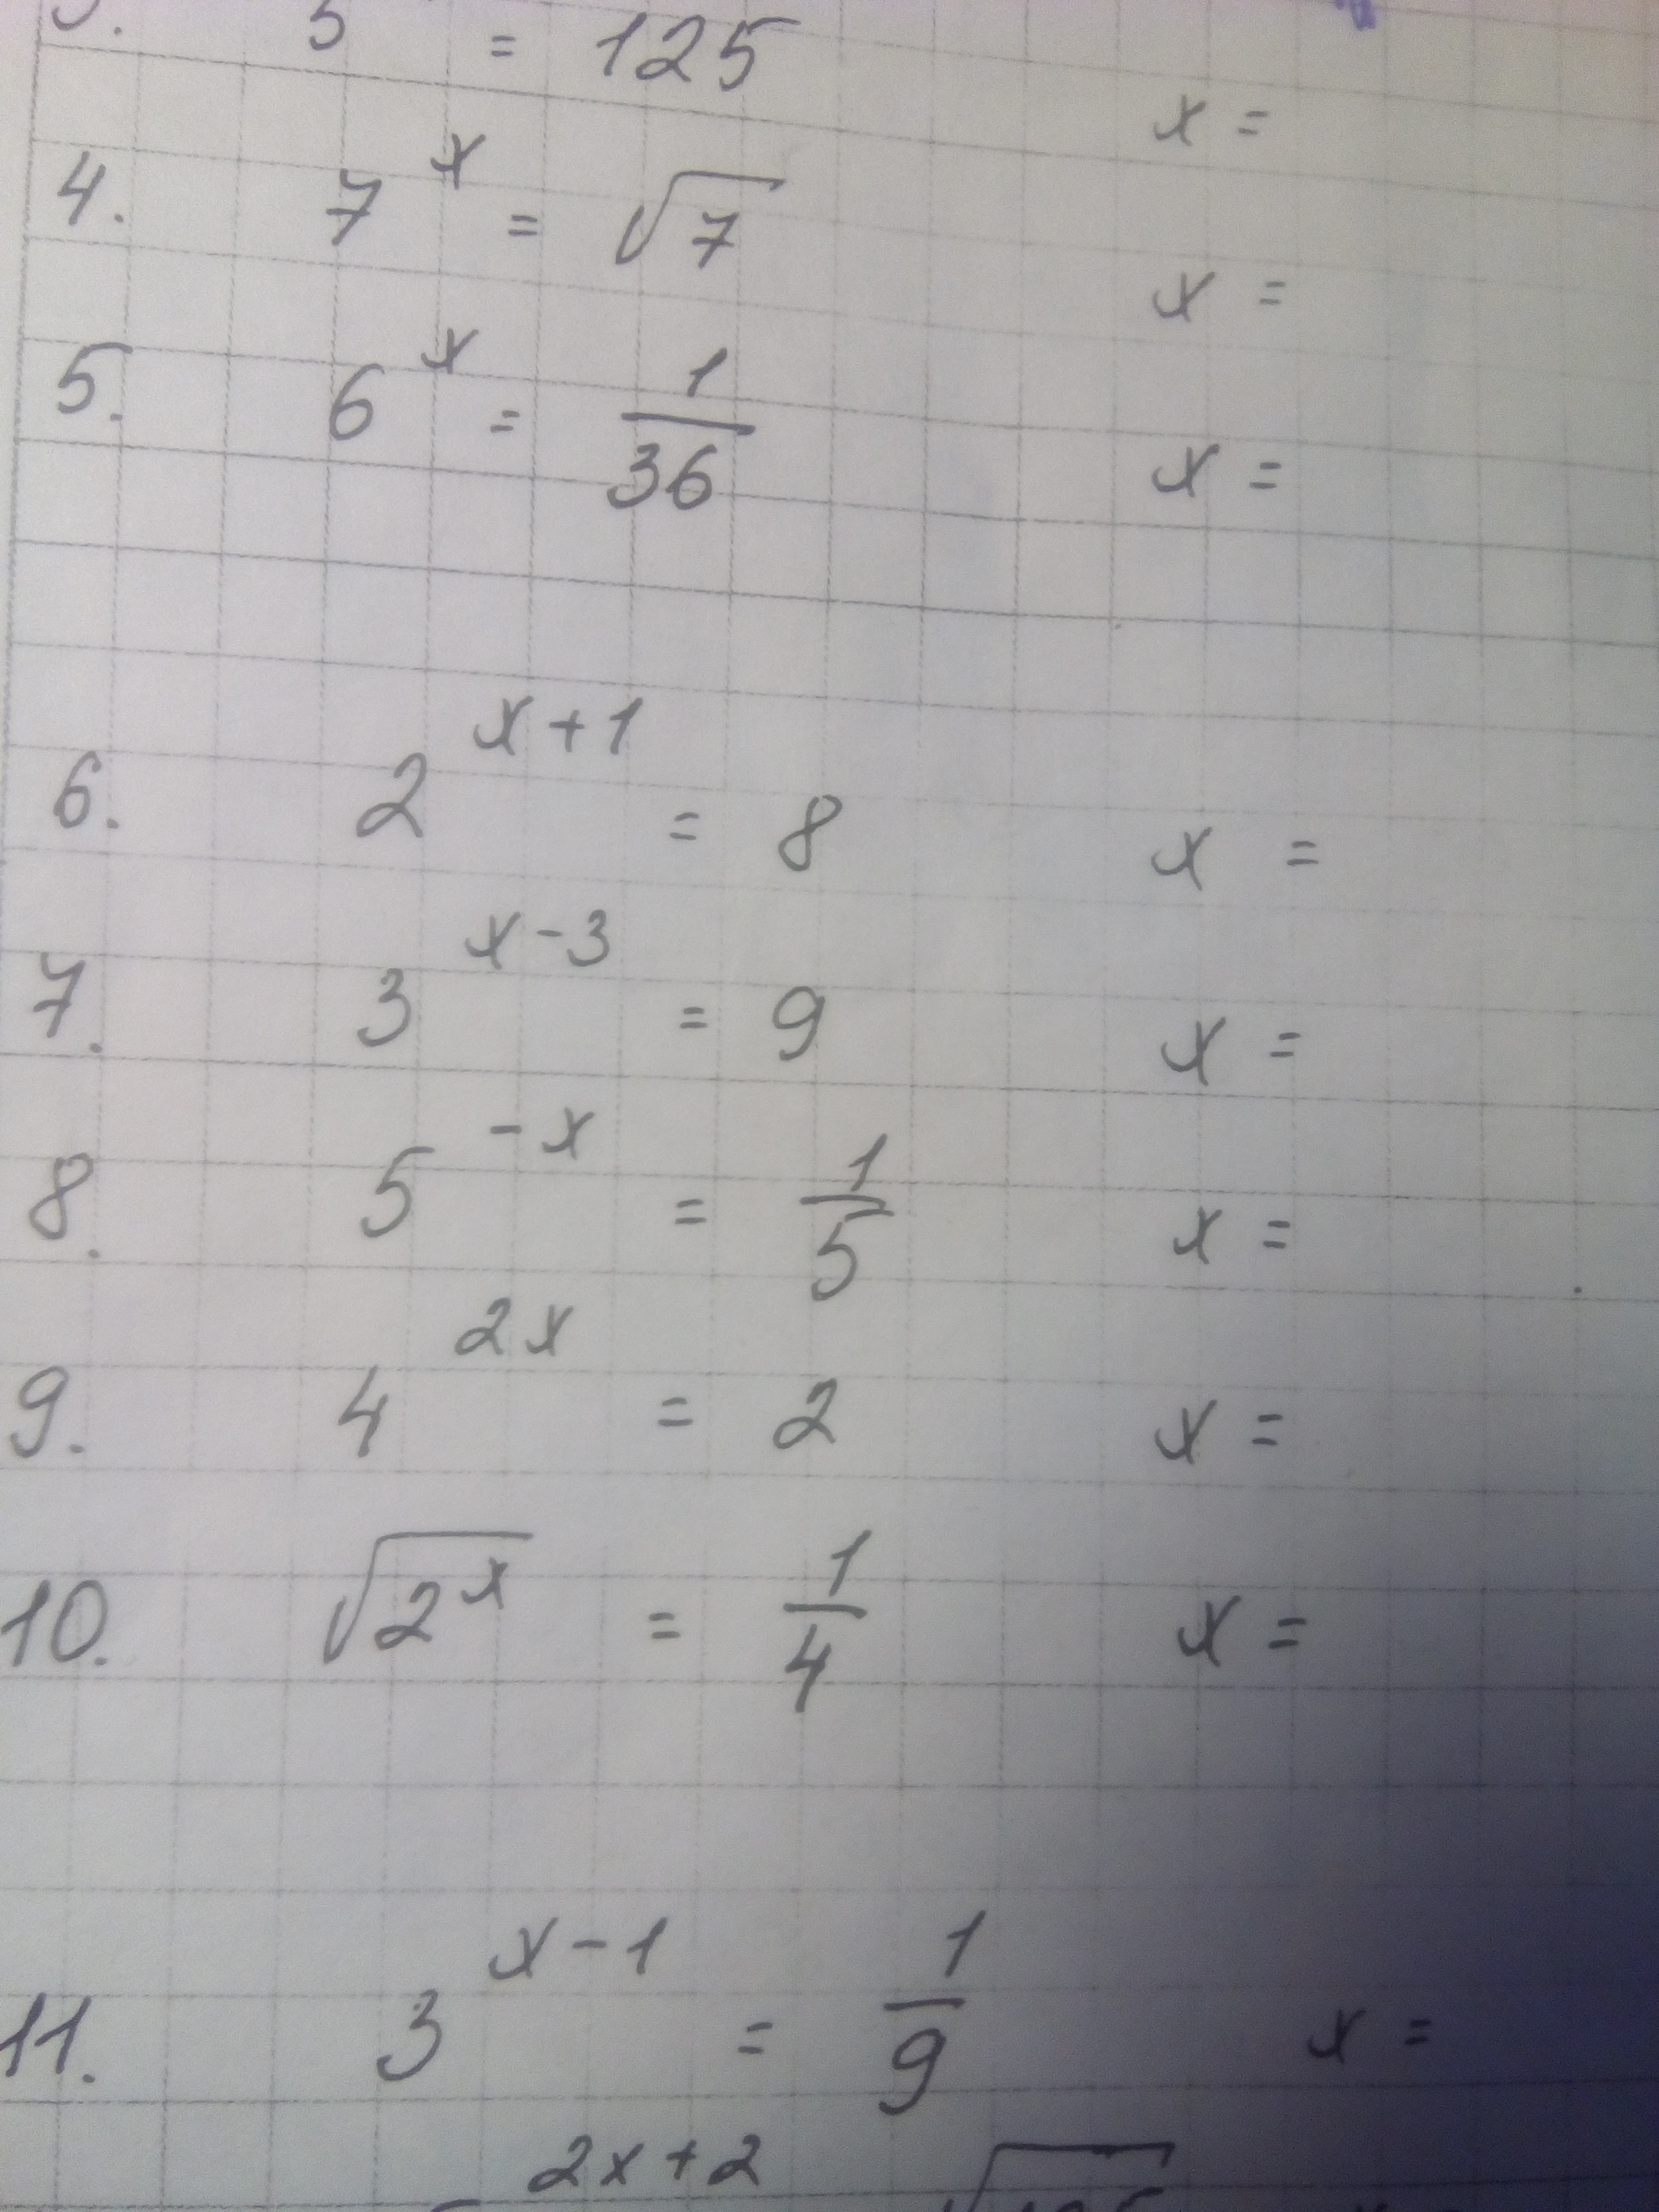 5 = 125 x =
4. 7^x = √7 x =
5. 6^x = 1/36 x =
6. 2^(x+1) = 8 x =
7. 3^(x-3) = 9 x =
8. 5^(-x) = 1/5 x =
9. 4^(2x) = 2 x =
10. √(2^x) = 1/4 x =
11. 3^(x-1) = 1/9 x =
2x+2